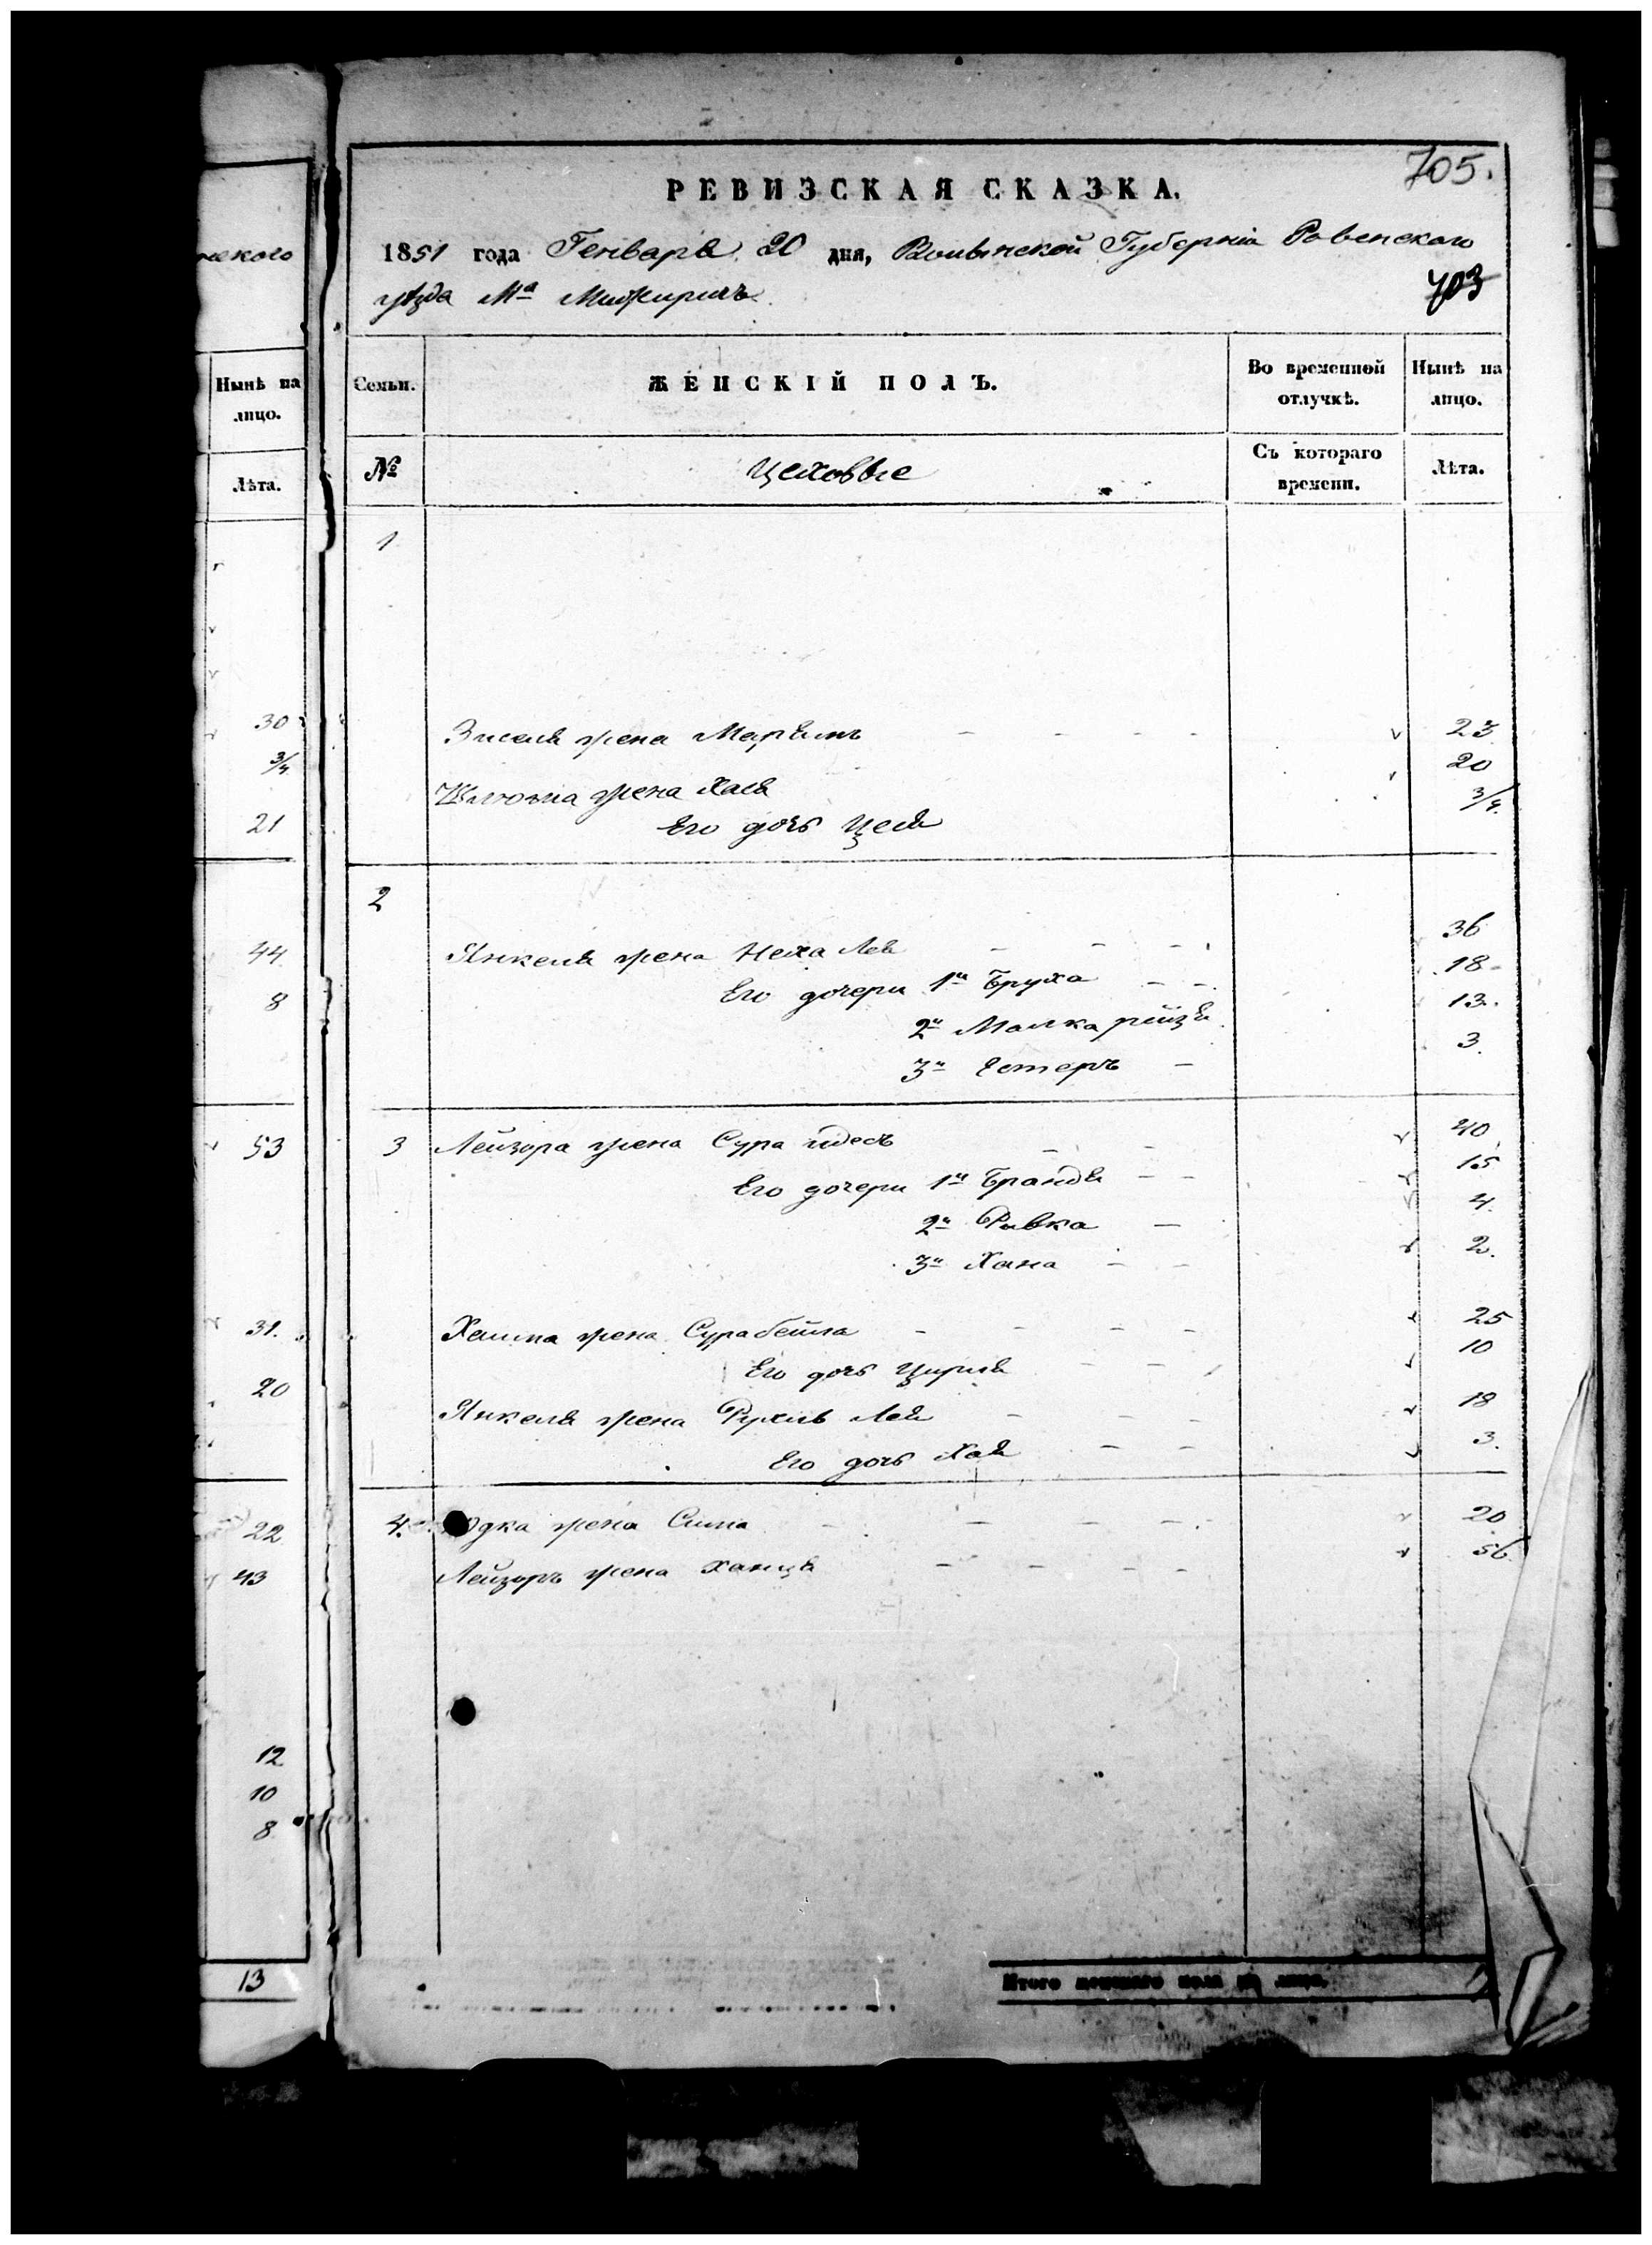 705.
РЕВИЗСКАЯ СКАЗКА.
1851 года Генваря 20 дня, Волынской Губерніи Ровенского
уѣзда Мᵃ Межиричъ
703
Нынѣ на лицо.
Лѣта.
30
3/4
21
44
8
53
31.
20
22
43
12
10
8
13
Семьи. ЖЕНСКІЙ ПОЛЪ. Во временной отлучкѣ. Нынѣ на лицо.
№ Цеховые Съ котораго времени. Лѣта.
1
Зиселя жена Марьямъ 23
Шлиома жена Хася 20
Его дочь Цеся 3/4.
2
Янкеля жена Неха Лея 36
Его дочери 1ᵃ Бруха 18
2ᵃ Малка рейзя 13.
3ᵃ Естеръ 3.
3 Лейзора жена Сура идесъ 40
Его дочери 1ᵃ Брандя 15
2ᵃ Ривка 4.
3ᵃ Хана 2.
Хаима жена Сурабейла 25
Его дочь Цирля 10
Янкеля жена Рухль Лея 18
Его дочь Хая 3.
4. Юдка жена Сима 20
Лейзоръ жена Ханця 56
Итого женскаго пола на лицо.